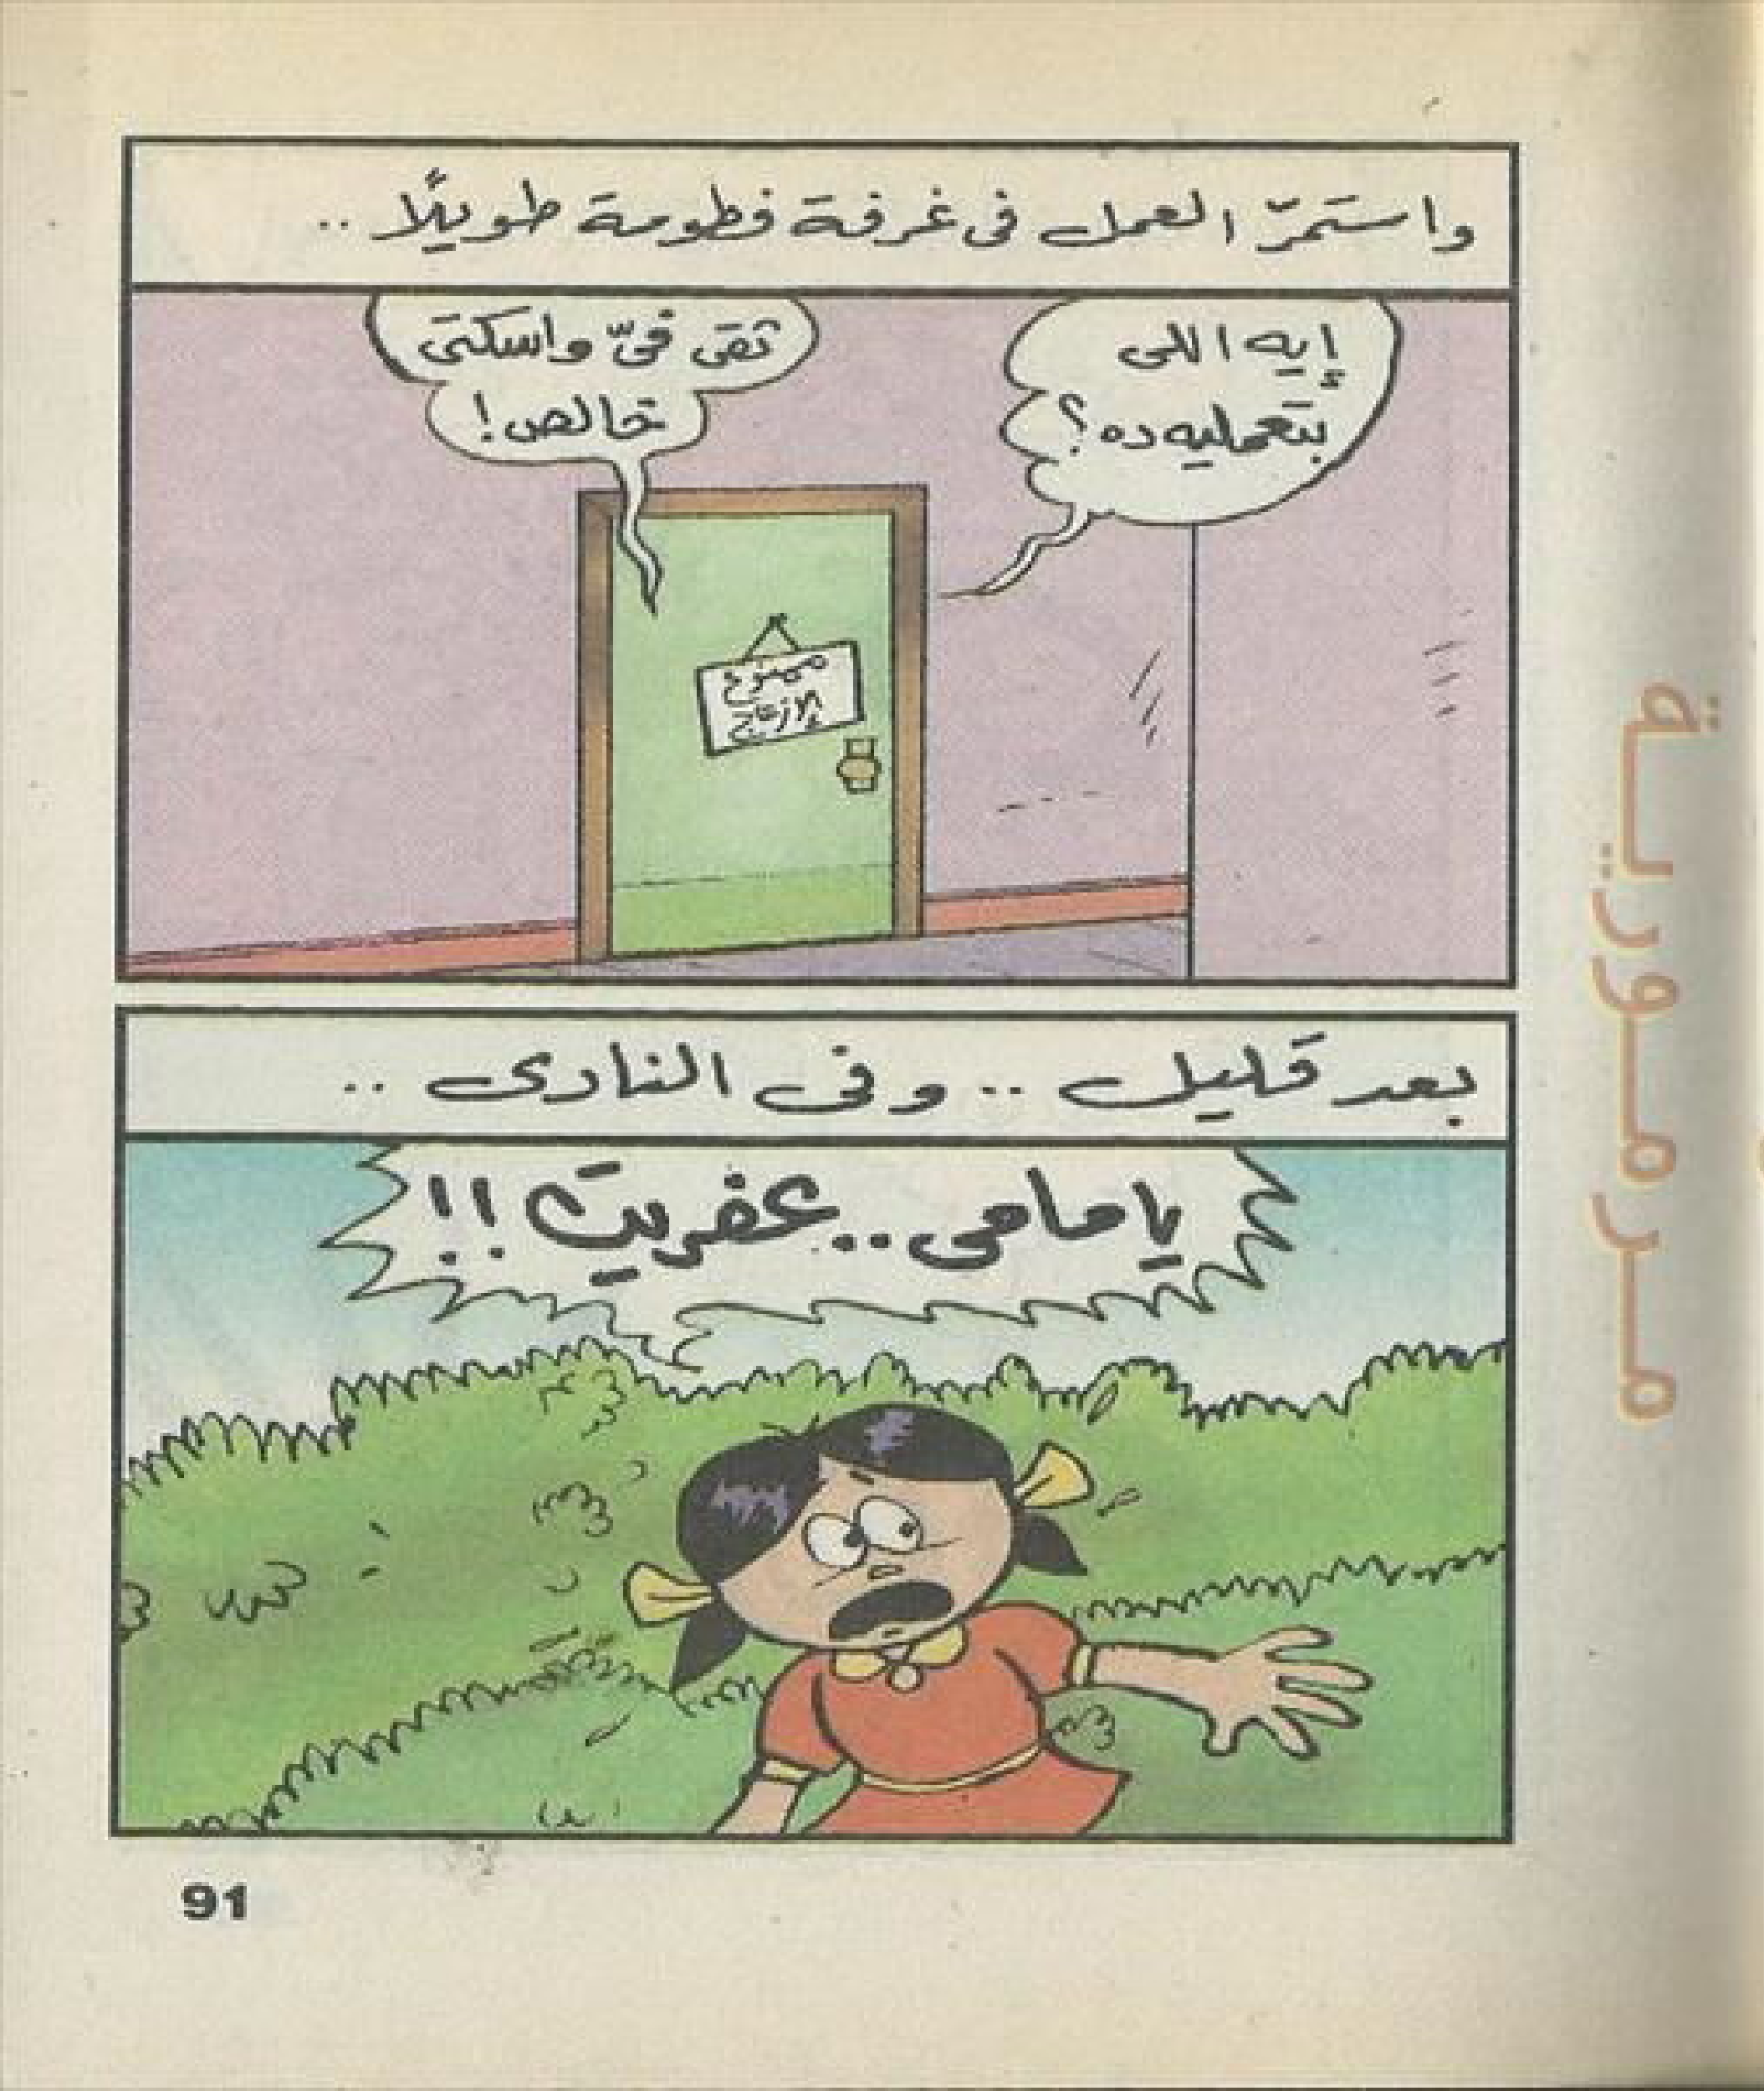 واستمرّ العمل فى غرفة فطومة طويلًا ..
إيه اللى
بتعمليه ده؟
ثقى فىّ واسكتى
خالص!
ممنوع
الإزعاج
بعد قليل .. وفى النادى ..
يا مامى .. عفريت !!
مرمورية
91